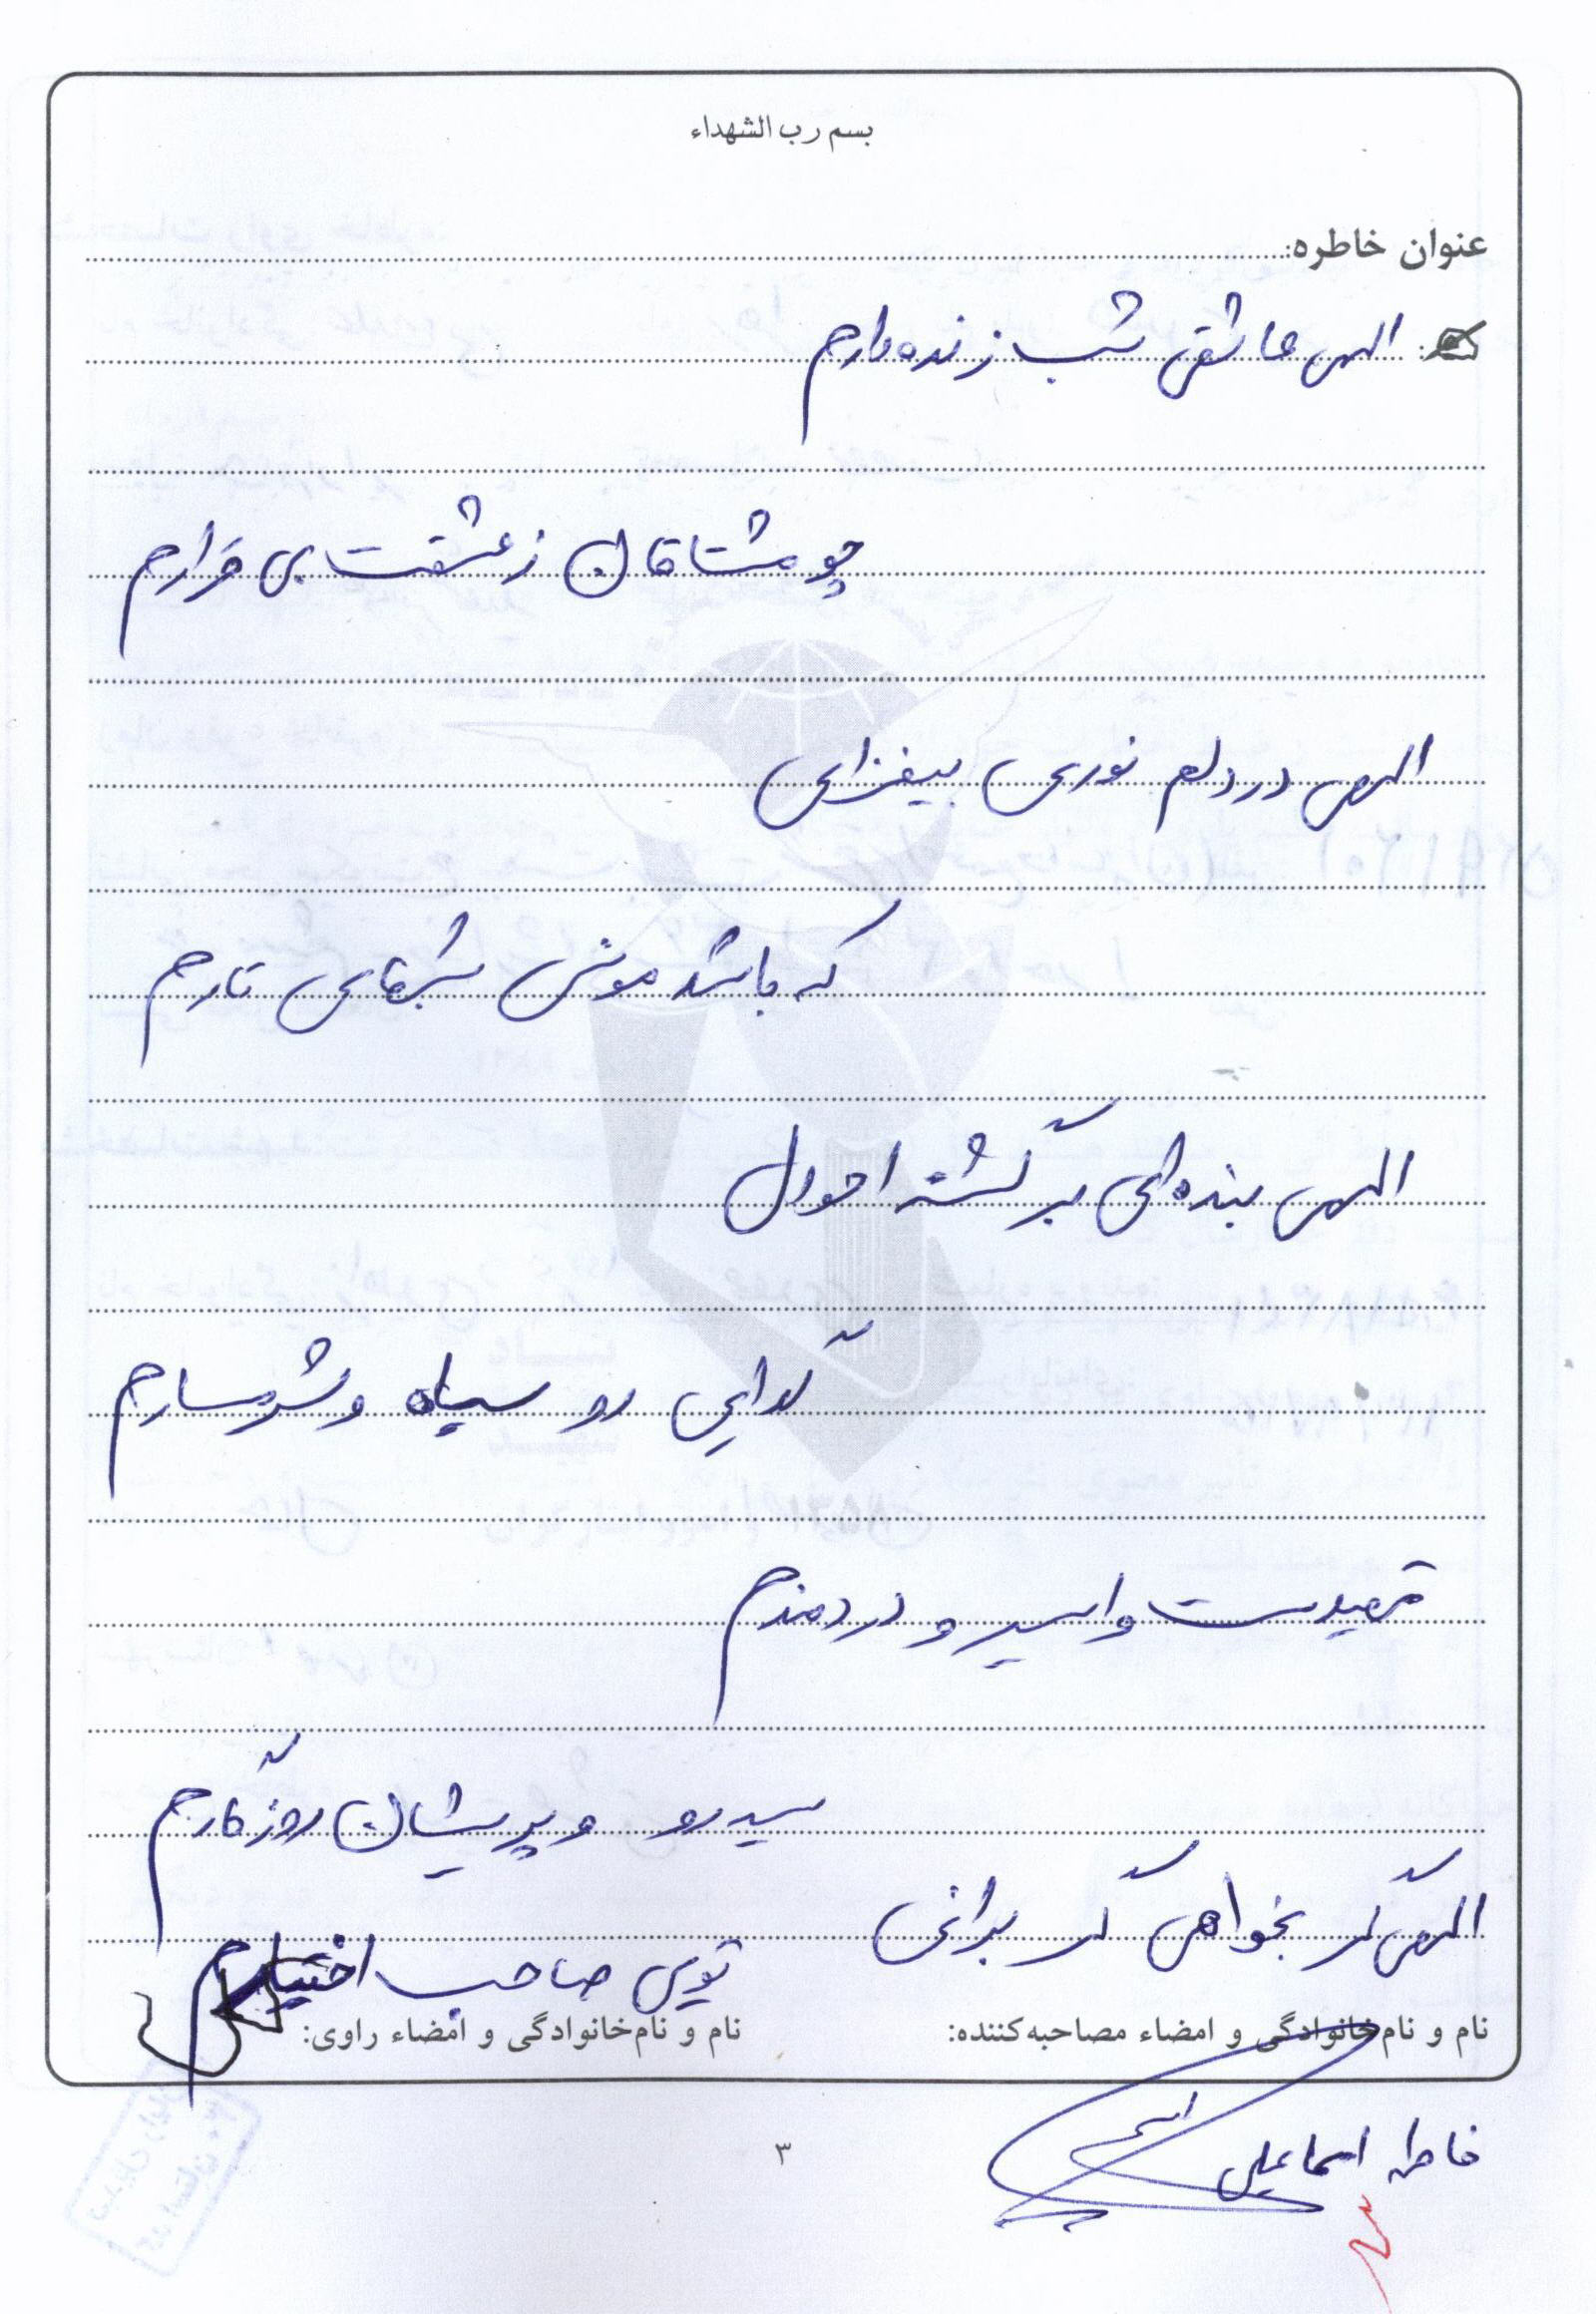 بسم رب الشهداء
عنوان خاطره:
الهی عاشقی شب زنده دارم
چو مشتاقان ز عشقت بی قرارم
الهی در دلم نوری بیفزای
که باشد مونس شبهای تارم
الهی بنده‌ای برگشته احوال
گدایی رو سیاه و شرمسارم
تهیدست و اسیر و دردمندم
سیه رو و پریشان روزگارم
الهی گر بخواهی گر برانی
تویی صاحب اختیارم
نام و نام‌خانوادگی و امضاء مصاحبه‌کننده: نام و نام‌خانوادگی و امضاء راوی:
فاطمه اسماعیلی
۳